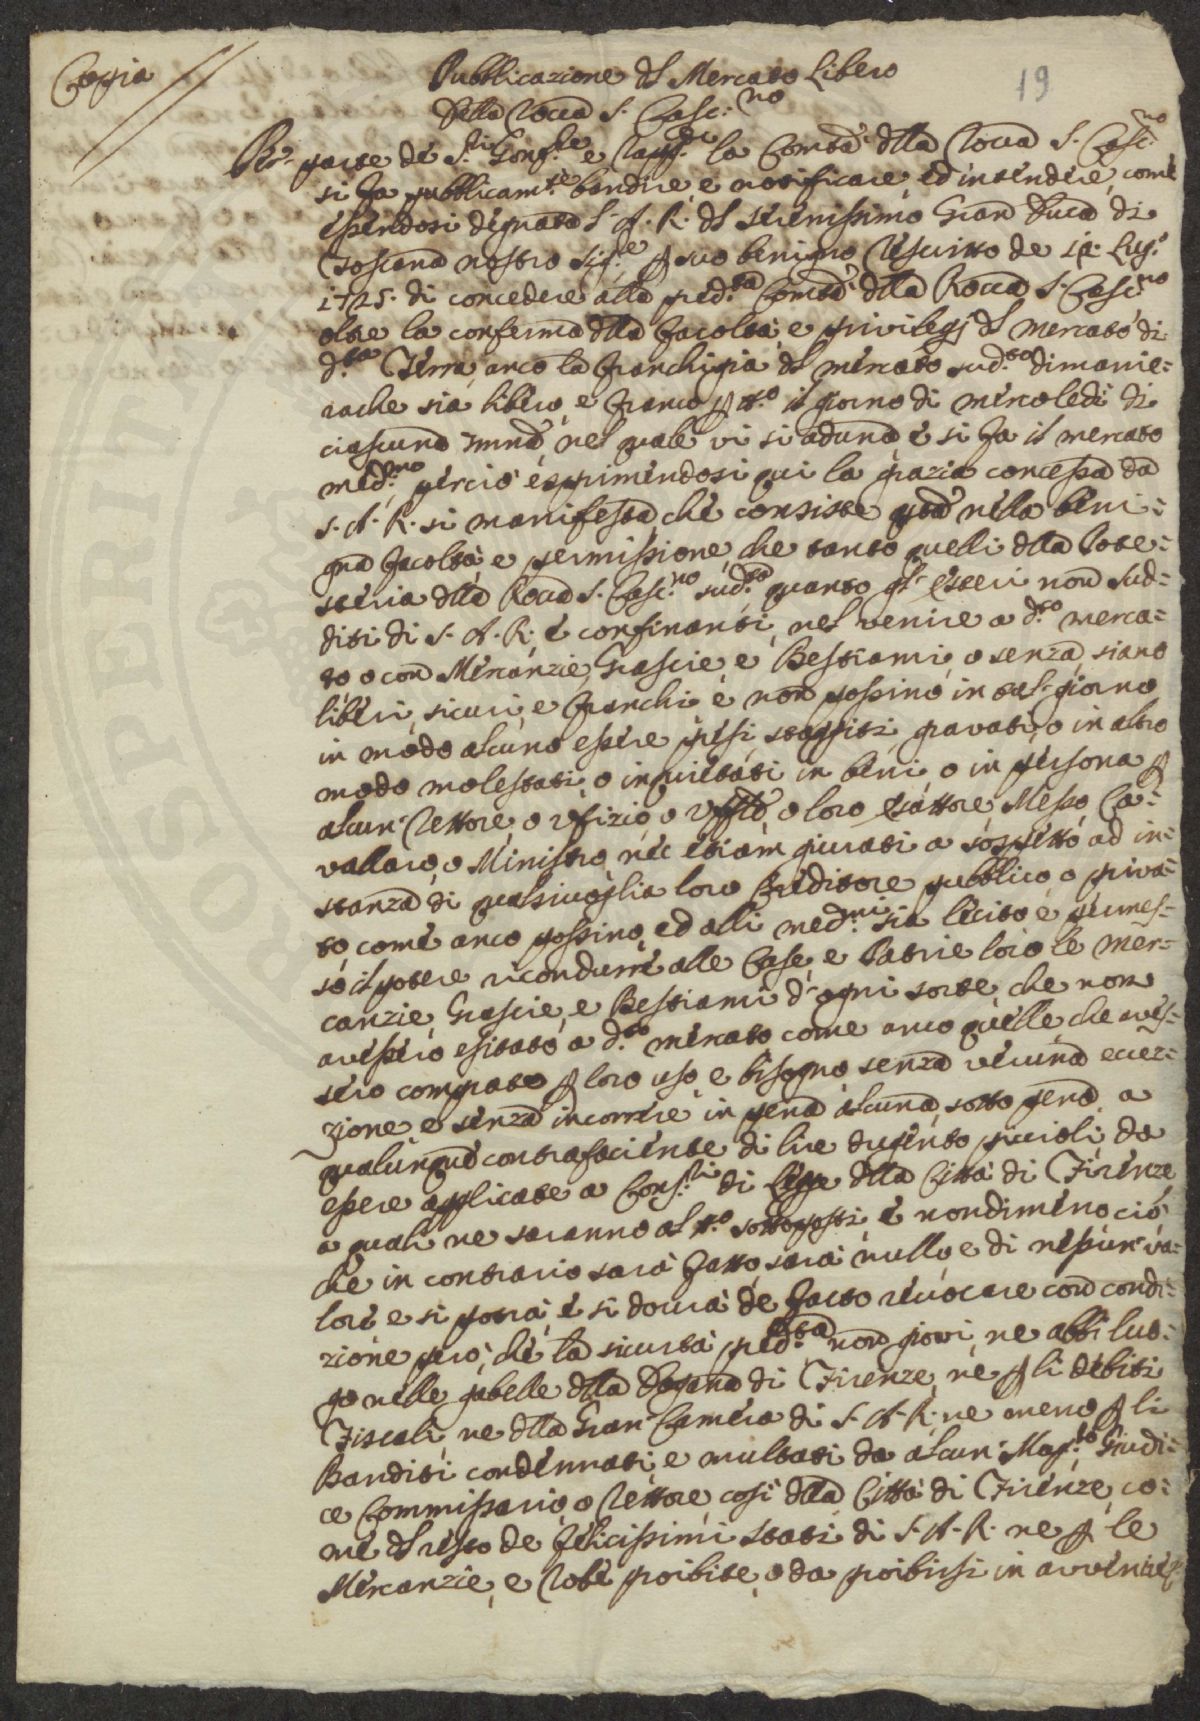 Copia
19
Pubblicazione dl Mercato Libero
della Rocca S. Casc:no
Per parte de S.ri Gonf:re e Rapp:ti la Comtà dlla Rocca S. Casc:no
si fa pubblicam:te bandire, e notificare, ed intendere, come
essendosi degnata S. A. R. dl Serenissimo Gran Duca di
Toscana nostro Sig:re p suo benigno Rescritto de Lug:o
1725. di concedere alla pred:ta Comtà dlla Rocca S. Casc:no
oltre la conferma dlla facoltà, e privilegj dl mercato di
d:ta Terra, anco la franchigia dl mercato sud:to dimanie-
rache sia libero, e franco p tt:o il giorno di mercoledi di
ciascuna 7mna, nel quale vi si aduna e si fa il mercato
med:mo perciò esprimendosi qui la grazia concessa da
S. A. R. si manifesta, che consiste qta nella beni-
gna facoltà e permissione, che tanto quelli dlla Pote-
steria dlla Rocca S. Casc:no sud:to quanto gl'esteri non sud-
diti di S. A. R. e confinanti, nel venire a d:to merca-
to o con Mercanzie, Grascie, e Bestiami, o senza, siano
liberi, sicuri, e franchi e non possino in tal giorno
in modo alcuno essere presi staggiti, gravati, o in altro
modo molestati, o inquietati in beni, o in persona p
alcun Rettore, o ufizio, o uffle, o loro esattore, Messo, Ca-
vallaro, o Ministro, nec etiam giurati a sospetto ad in-
stanza di qualsivoglia loro Creditore pubblico, o priva-
to, come anco possino, ed alli med:mi sia lecito, e permes-
so il potere ricondurre alle Case, e Patrie loro le Mer-
canzie, Grascie, e Bestiami d'ogni sorte, che non
avessero esitato a d:to mercato come anco quelle che aves-
sero comprate p loro uso, e bisogno senza veruna eccez-
zione, e senza incorrere in pena alcuna, sotto pena, a
qualunque contrafaciente di lire dugento piccioli da
essere applicate a Cons:li di Legge dlla Città di Firenze
a quali ne saranno al tt:o sottoposti, e nondimeno ciò
che in contrario sarà fatto, sarà nullo, e di nessun va-
lore e si potrà, e si dovrà de facto revocare con condi-
zione però, che la sicurtà pred:ta non giovi, ne abbi luo-
go nelle gabelle dlla Dogana di Firenze, ne p li debiti
Fiscali, ne dlla Gran Camera di S. A. R. ne meno p li
Banditi, condennati, e multati da alcun Mag:to Giudi-
ce Commissario, o Rettore, così dlla Città di Firenze, co-
me dl resto de felicissimi stati di S. A. R. ne p le
Mercanzie, e Robe proibite, o da proibirsi in avvenire,